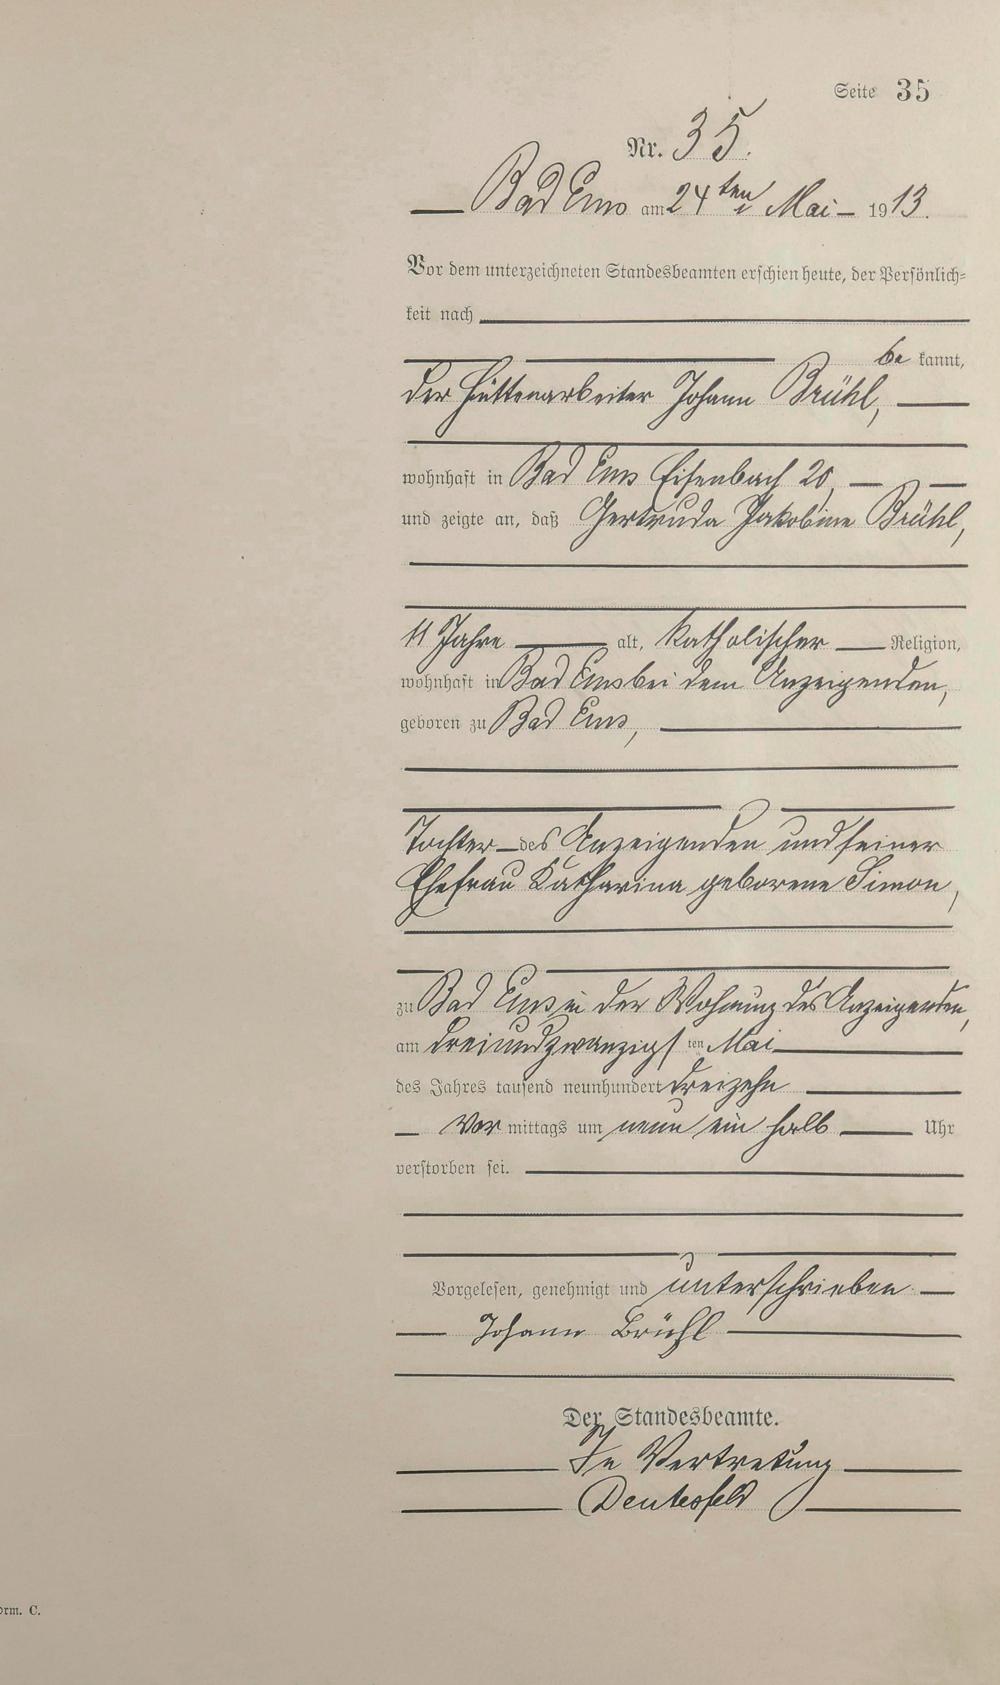 Seite 35
Nr. 35.
Bad Ems am 24ten Mai 1913.
Vor dem unterzeichneten Standesbeamten erschien heute, der Persönlich=
keit nach
be kannt,
der Hüttenarbeiter Johann Brühl,
wohnhaft in Bad Ems Eisenbach 20,
und zeigte an, daß Gertruda Jakobine Brühl,
11 Jahre alt, katholischer Religion,
wohnhaft in Bad Ems bei dem Anzeigenden,
geboren zu Bad Ems,
Tochter des Anzeigenden und seiner
Ehefrau Katharina geborene Simon,
zu Bad Ems in der Wohnung des Anzeigenden,
am dreiundzwanzigsten Mai
des Jahres tausend neunhundert dreizehn
Vor mittags um neun ein halb Uhr
verstorben sei.
Vorgelesen, genehmigt und unterschrieben
Johann Brühl
Der Standesbeamte.
In Vertretung
orm. C.